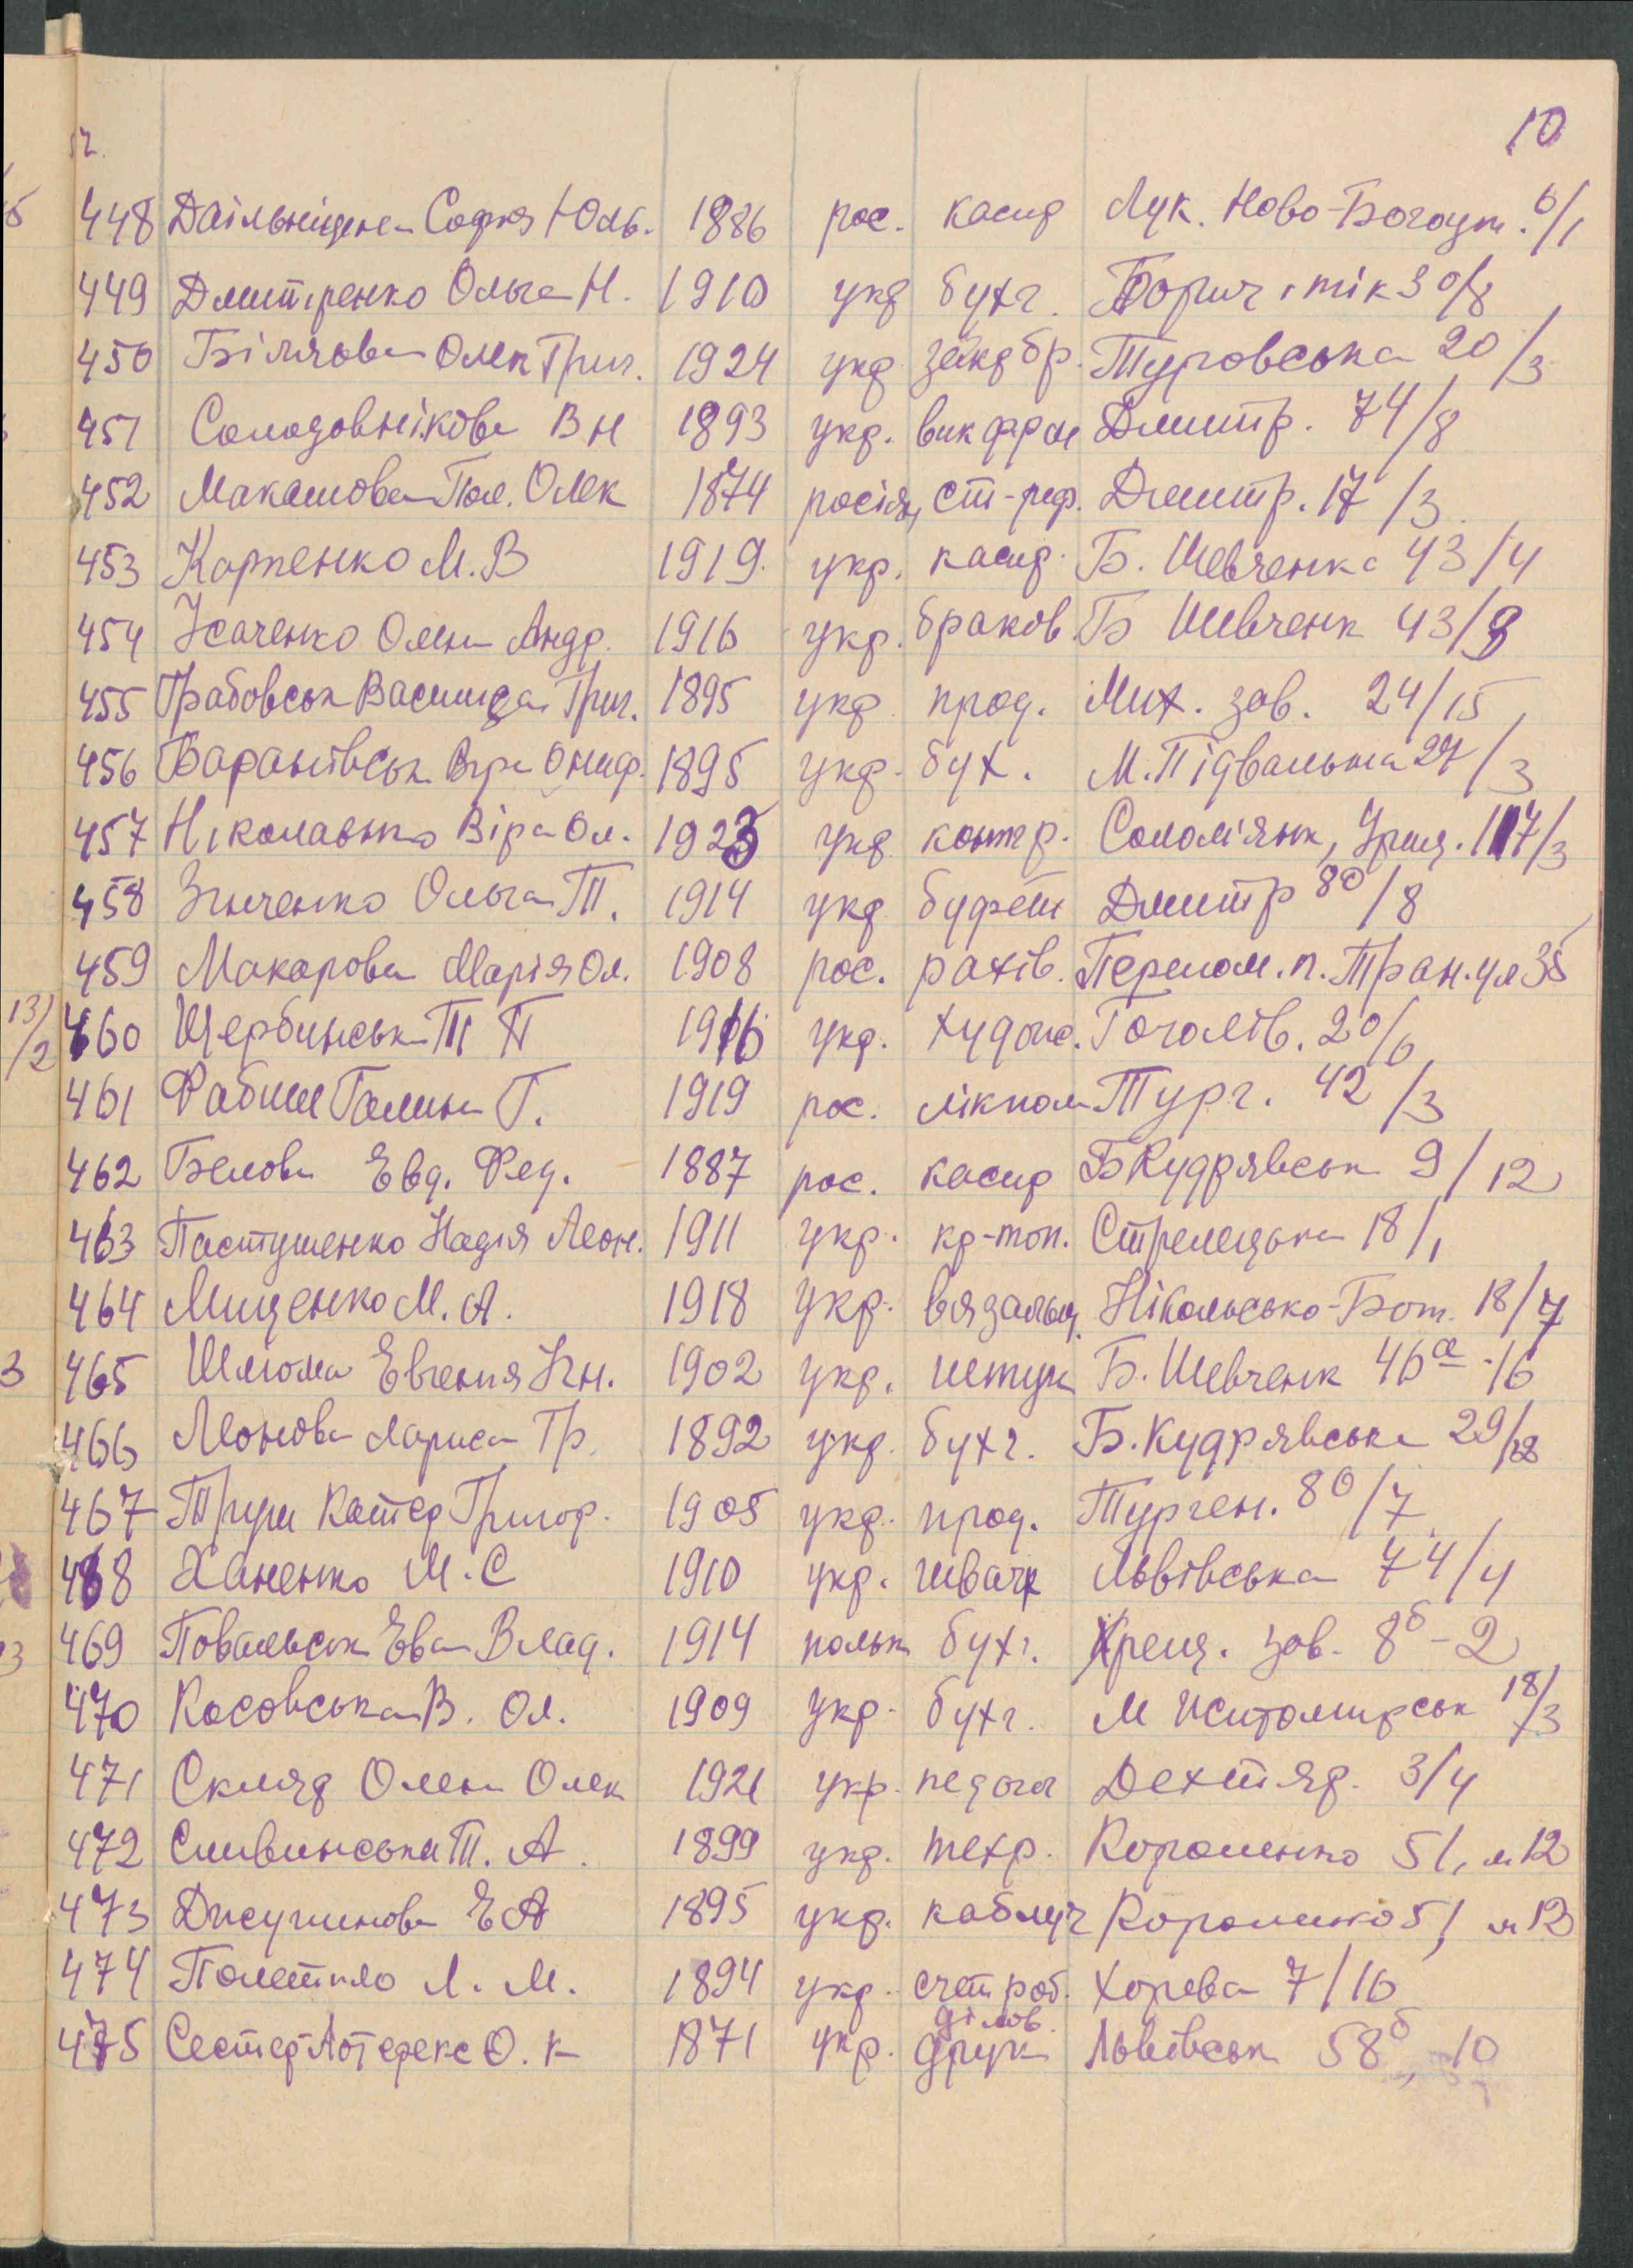 10
448 Софія Юль. 1886 рос. касир Лук. Ново-Богоут. 6/1
449 Дмитренко Ольга Н. 1910 укр бухг. Борич. тік 30/8
450 Білякова Олек Григ. 1924 укр Турговська 20/3
451 Солодовнікова В Н 1893 укр. Дмитр. 74/8
452 Макашова Пол. Олек 1874 росіян, Дмитр. 17/3
453 Карпенко М.В 1919. укр. касир. Б. Шевченка 43/4
454 Усаченко Олена Андр. 1916 укр. браков. Б Шевченк 43/9
455 Грабовськ Василиса Григ. 1895 укр прод. Мих. зав. 24/15
456 Барановськ Віра Ониф. 1895 укр. бух. М. Підвальна 27/3
457 Ніколаєнко Віра Ол. 1923 укр контр. Солом'янк, Уриц. 117/3
458 Зінченко Ольга Т. 1914 укр буфет Дмитр 80/8
459 Макарова Марія Ол. 1908 рос. рахів. п. Тран. ул 35
460 Щербинськ Т П 1916 укр. художн. Гоголів. 20/6
461 Фабиш Галина Г. 1919 рос. лікпом Тург. 42/3
462 Бєлова Евд. Фед. 1887 рос. касир Б Кудрявськ 9/12
463 Пастушенко Надія Леон. 1911 укр. кр-топ. Стрелецька 18/1
464 Мищенко М. А. 1918 укр. вязальщ. Нікольсько-Бот. 18/7
465 Шлюма Евгения Кн. 1902 укр. штук Б. Шевченк 46а-16
466 Леонова Лариса Гр. 1892 укр. бухг. Б. Кудрявська 29/28
467 Катер Григор. 1905 укр. прод. Турген. 80/7
468 Ханенко М. С 1910 укр. швачк Львівська 74/4
469 Повальськ Ева Влад. 1914 польк бухг. Крещ. зав. 8б-2
470 Косовська В. Ол. 1909 укр. бухг. М Житомирськ 18/3
471 Скляр Олена Олек 1921 укр. педагог Дехтяр. 3/4
472 Сливинська Т. А. 1899 укр. техр. Короленко 51, м 12
473 Джумінова Е А 1895 укр. каблуч Короленко 51, м 12
474 Полетило Л. М. 1894 укр. счет роб. Хорева 7/16
475 О. К 1871 укр. ділов. друк Львівськ 58б, 10